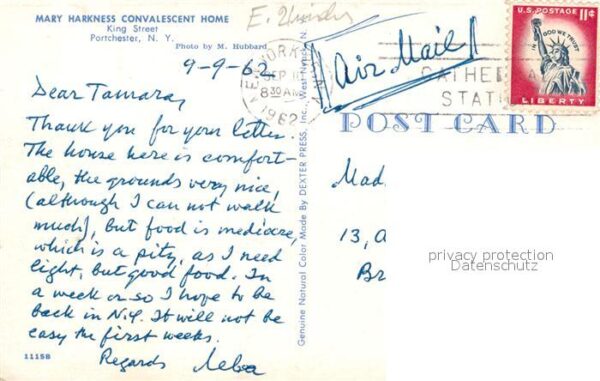 MARY HARKNESS CONVALESCENT HOME
King Street
Portchester, N. Y.
Photo by M. Hubbard
9-9-62
Dear Tamara,
Thank you for your letter.
The house here is comfort-
able, the grounds very nice,
(although I can not walk
much), but food is mediocre,
which is a pity, as I need
light, but good food. In
a week or so I hope to be
back in N.Y. It will not be
easy the first weeks.
Regards
11158
Genuine Natural Color Made By DEXTER PRESS, Inc., West Nyack, N.
E.
Air Mail
NEW YORK
SEP
8 30 AM
1962
CATHE
STATI
U.S. POSTAGE 11¢
IN GOD WE TRUST
LIBERTY
POST CARD
Mad
13, A
Br
privacy protection
Datenschutz